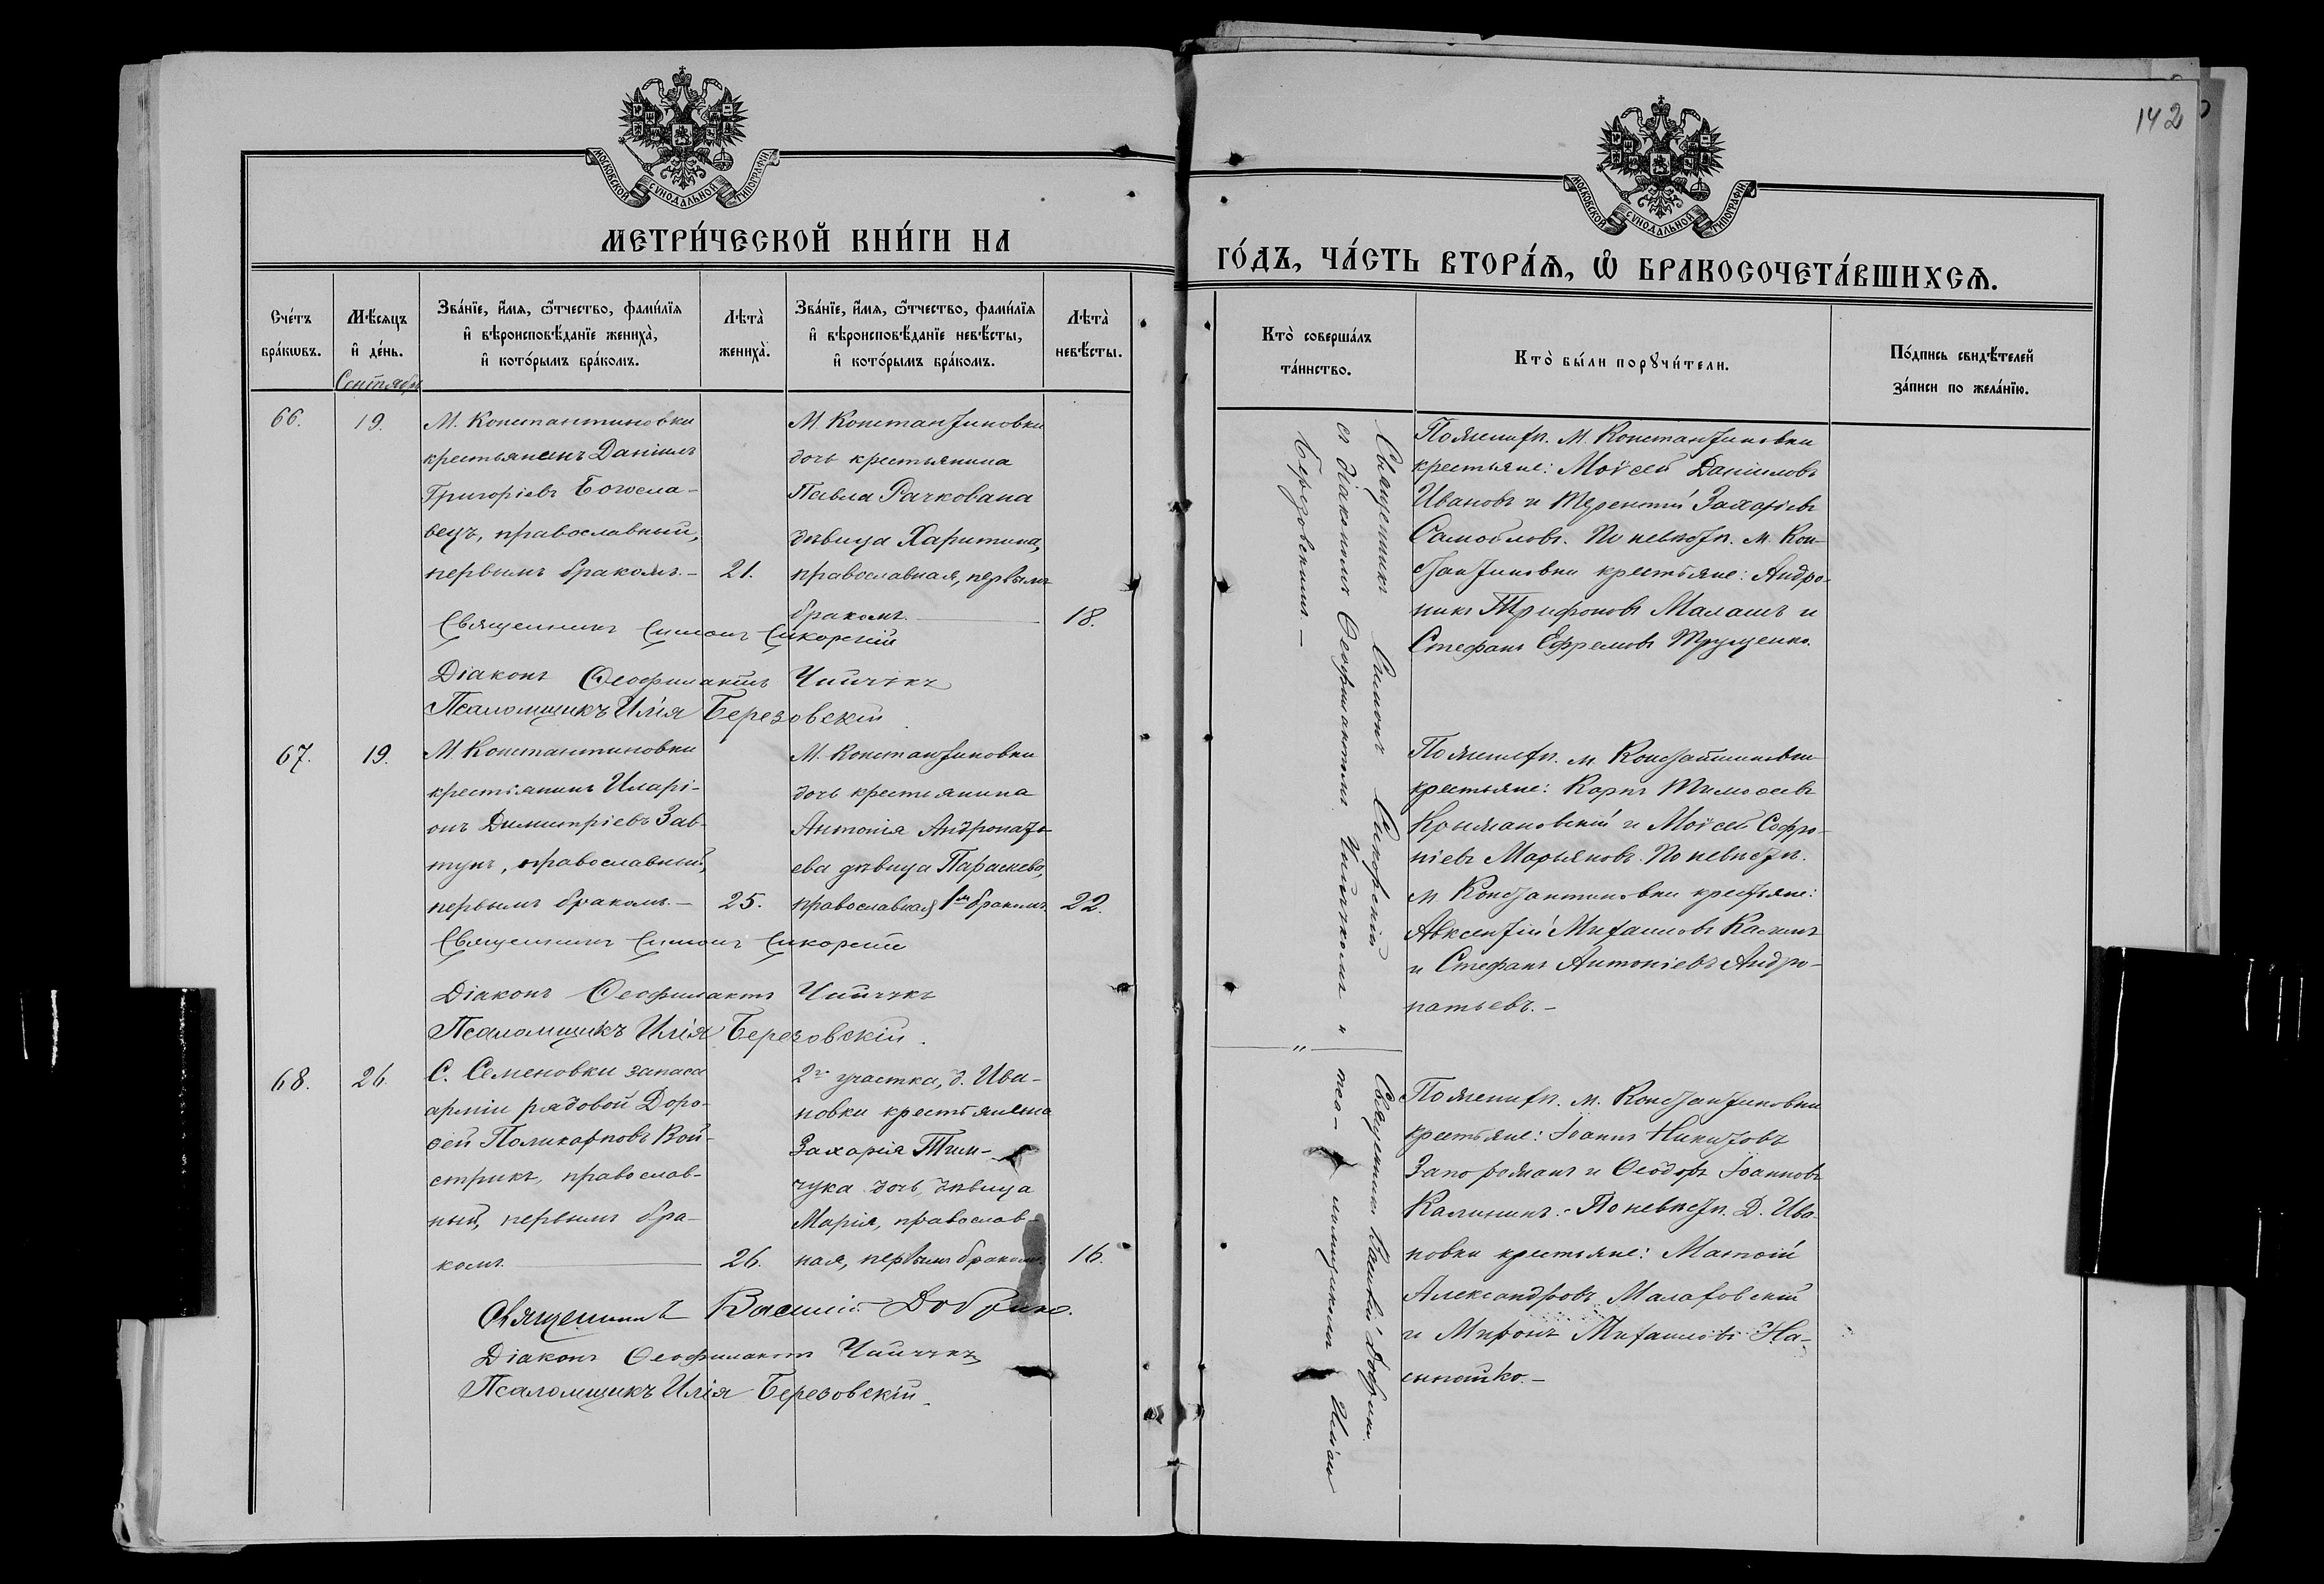 142
МОСКОВСКОЙ СѴНОДАЛЬНОЙ ТИПОГРАФІИ
МЕТРИ́ЧЕСКОЙ КНИ́ГИ НА
Сче́тъ бра́кѡвъ.
Мѣ́сяцъ и҆ де́нь.
Сентябрь
Зва́нїе, и҆́мѧ, ѻ҆́тчество, фами́лїѧ
и҆ вѣроисповѣ́данїе жениха̀,
и҆ кото́рымъ бра́комъ.
Лѣта̀ жениха̀.
Зва́нїе, и҆́мѧ, ѻ҆́тчество, фами́лїѧ
и҆ вѣроисповѣ́данїе невѣ́сты,
и҆ кото́рымъ бра́комъ.
Лѣта̀ невѣ́сты.
66.
19.
М. Константиновки
крестьянинъ Даніилъ
Григоріевъ Богосла-
вецъ, православный,
первымъ бракомъ.-
21.
М. Константиновки
дочь крестьянина
Павла Рачкована
дѣвица Харитина,
православная, первымъ
бракомъ.
18.
Священникъ Симонъ Сикорскій
Діаконъ Ѳеофилактъ Чийчукъ
Псаломщикъ Илія Березовскій
67.
19.
М. Константиновки
крестьянинъ Иларі-
онъ Димитріевъ Зав-
тунъ, православный,
первымъ бракомъ.-
25.
М. Константиновки
дочь крестьянина
Антонія Андронать-
ева дѣвица Параскева,
православная, 1мъ бракомъ.
22.
Священникъ Симонъ Сикорскій
Діаконъ Ѳеофилактъ Чийчукъ
Псаломщикъ Илія Березовскій.
68.
26.
С. Семеновки запаса
арміи рядовой Доро-
ѳей Поликарповъ Вой-
стрикъ, православ-
ный, первымъ бра-
комъ.
26.
2го участка, д. Ива-
новки крестьянина
Захарія Тим-
чука дочь, дѣвица
Марія, православ-
ная, первымъ бракомъ.
16.
Священникъ Василій
Діаконъ Ѳеофилактъ Чийчукъ
Псаломщикъ Илія Березовскій.
МОСКОВСКОЙ СѴНОДАЛЬНОЙ ТИПОГРАФІИ
ГО́ДЪ, ЧА́СТЬ ВТОРА́Ѧ, Ѡ҆ БРАКОСОЧЕТА́ВШИХСѦ.
Кто̀ соверша́лъ та́инство.
Кто̀ бы́ли порꙋчи́тели.
По́дпись свидѣ́телей
за́писи по жела́нїю.
Священникъ Симонъ Сикорскій
съ діакономъ Ѳеофилактомъ Чийчукомъ и псаломщикомъ Иліею
Березовскимъ.-
Священникъ Василій
По женихѣ. М. Константиновки
крестьяне: Моѵсей Даніиловъ
Ивановъ и Терентій Захаріевъ
Самойловъ. По невѣстѣ. М. Кон-
стантиновки крестьяне: Андро-
никъ Трифоновъ Малашъ и
Стефанъ Ефремовъ Трущенко.
По женихѣ. м. Константиновки
крестьяне: Карпъ Тимоѳеевъ
Крыжановскій и Моѵсей Софро-
ніевъ Марьяновъ. По невѣстѣ.
м Константиновки крестьяне:
Авксентій Михаиловъ
и Стефанъ Антоніевъ Андро-
натьевъ.-
По женихѣ. м. Константиновки
крестьяне: Іоаннъ Никитовъ
Запорожанъ и Ѳеодоръ Іоанновъ
Калининъ.- По невѣстѣ. Д. Ива-
новки крестьяне: Матѳій
Александровъ Малаховскій
и Миронъ Михаиловъ